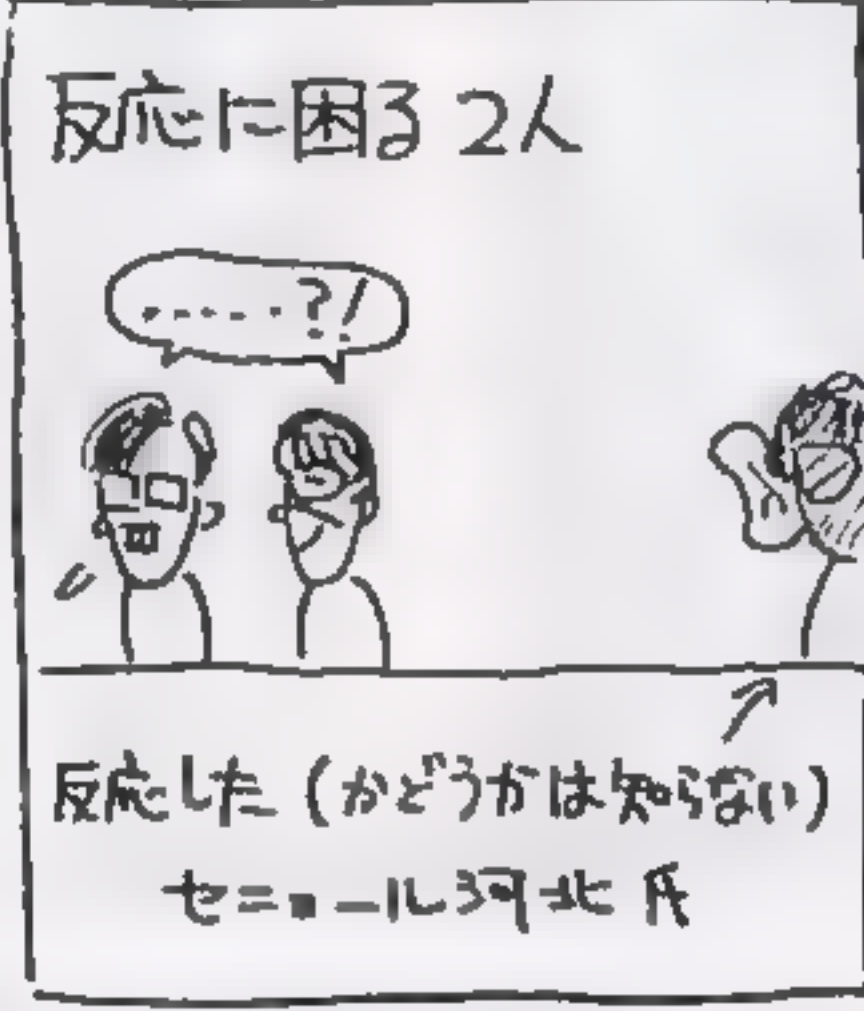 反応に困る2人
.....?!
反応した(かどうかは知らない)
セニョール河北氏